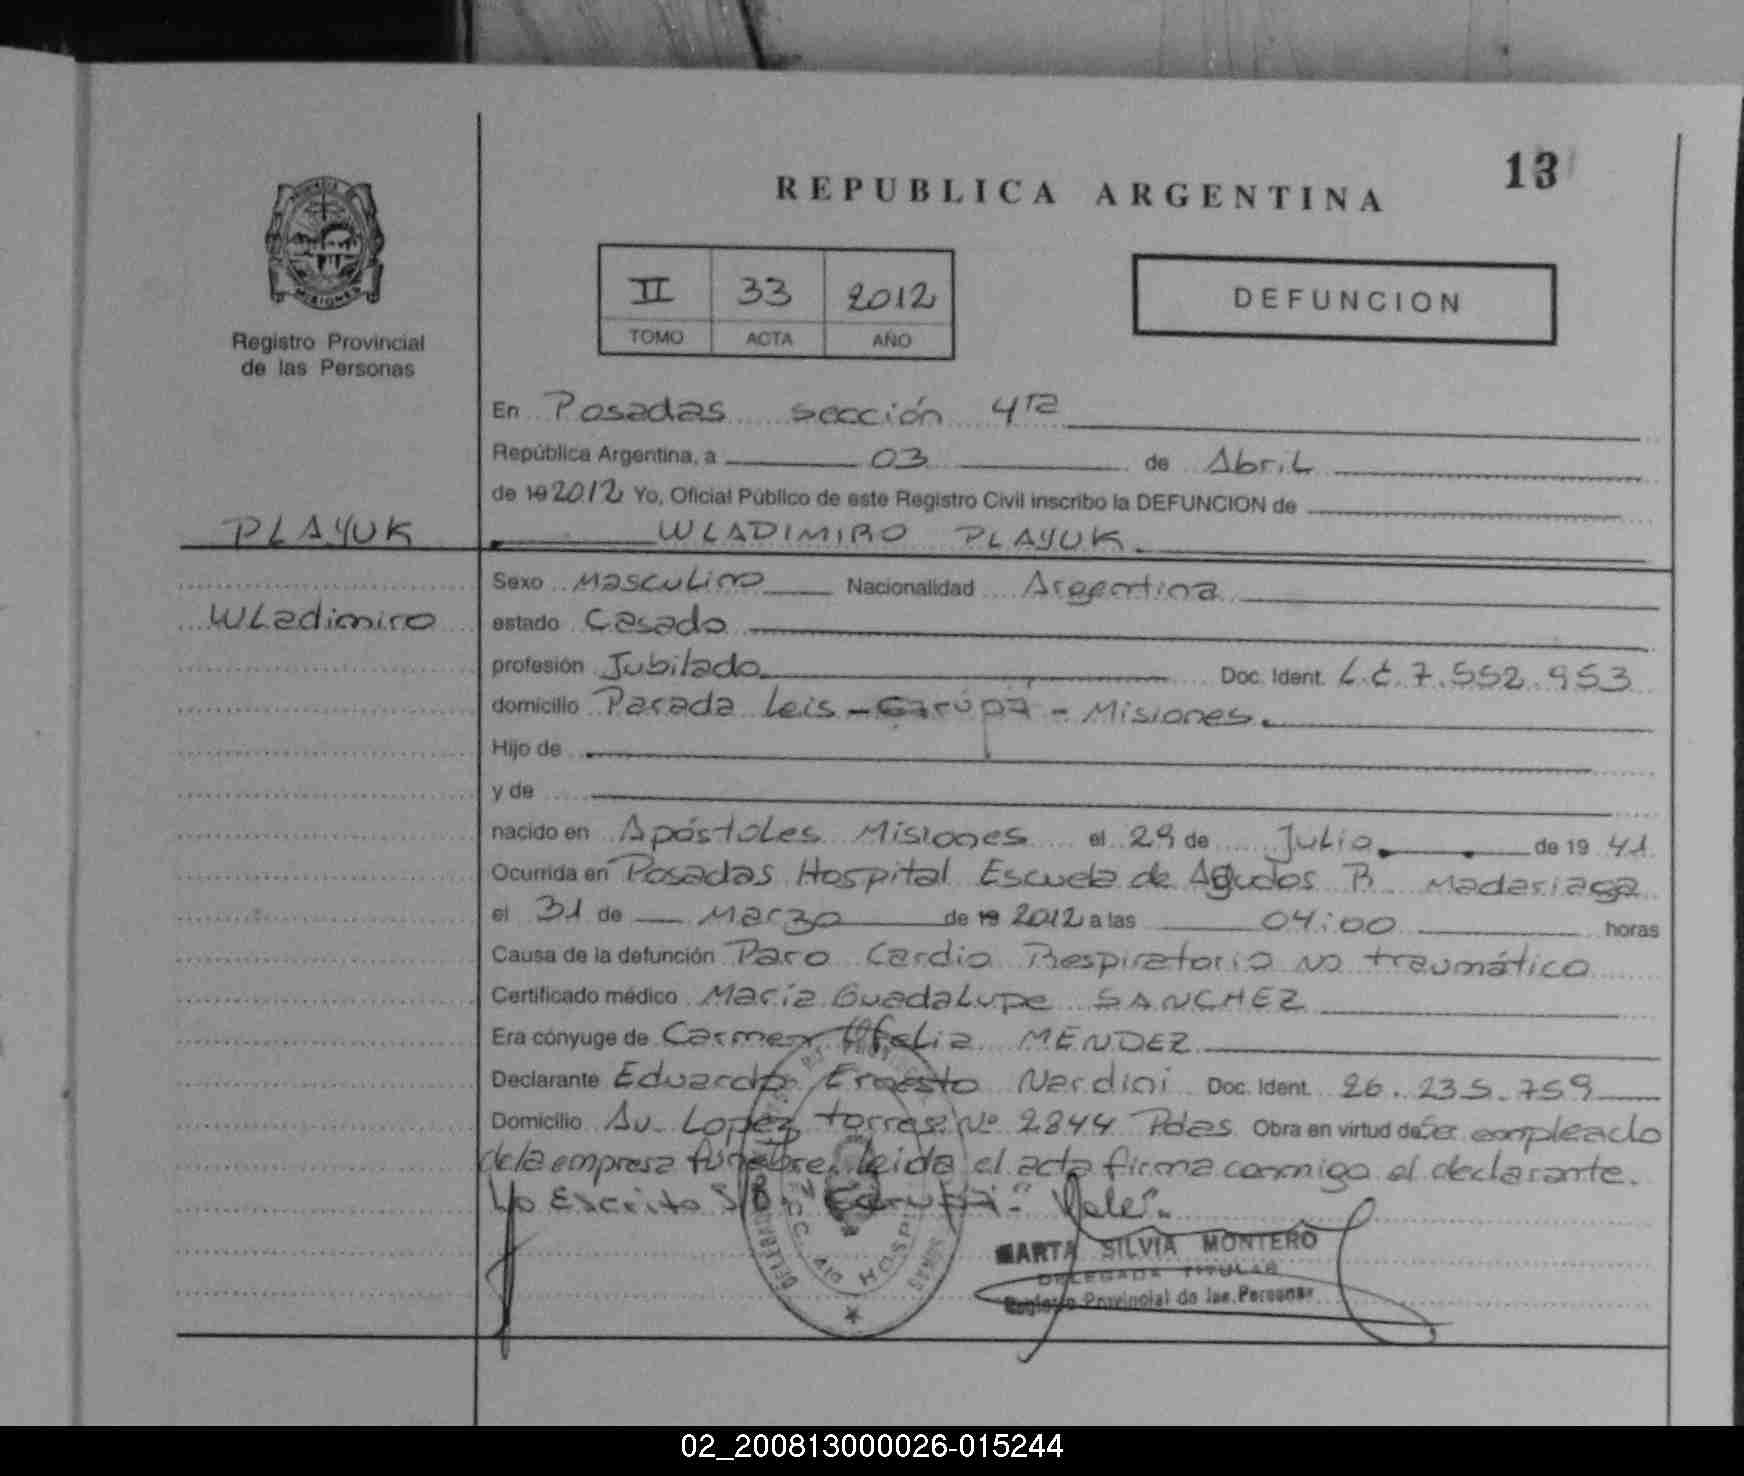 13
REPUBLICA ARGENTINA
MISIONES
Registro Provincial
de las Personas
II 33 2012
TOMO ACTA AÑO
DEFUNCION
En Posadas sección 4ta
República Argentina, a 03 de Abril
de 19 2012 Yo, Oficial Público de este Registro Civil inscribo la DEFUNCION de
PLAYUK
WLADIMIRO PLAYUK.
Wladimiro
Sexo Masculino Nacionalidad Argentina
estado Casado
profesión Jubilado. Doc. Ident. L.E 7.552.953
domicilio Parada Leis - Garupá - Misiones.
Hijo de
y de
nacido en Apóstoles Misiones el 29 de Julio de 19 41
Ocurrida en Posadas Hospital Escuela de Agudos R. Madariaga
el 31 de Marzo de 19 2012 a las 04:00 horas
Causa de la defunción Paro Cardio Respiratorio no traumático
Certificado médico María Guadalupe SANCHEZ
Era cónyuge de Carmen Ofelia MENDEZ
Declarante Eduardo Ernesto Nardini Doc. Ident. 26.235.759
Domicilio Av. Lopez torres Nº 2844 Pdas Obra en virtud de Ser empleado
de la empresa fúnebre. Leida el acta firma conmigo el declarante.
Lo Escrito S/B. "Garupá." Vale".
HOSPI
MARTA SILVIA MONTERO
DELEGADA TITULAR
Registro Provincial de las Personas
02_200813000026-015244